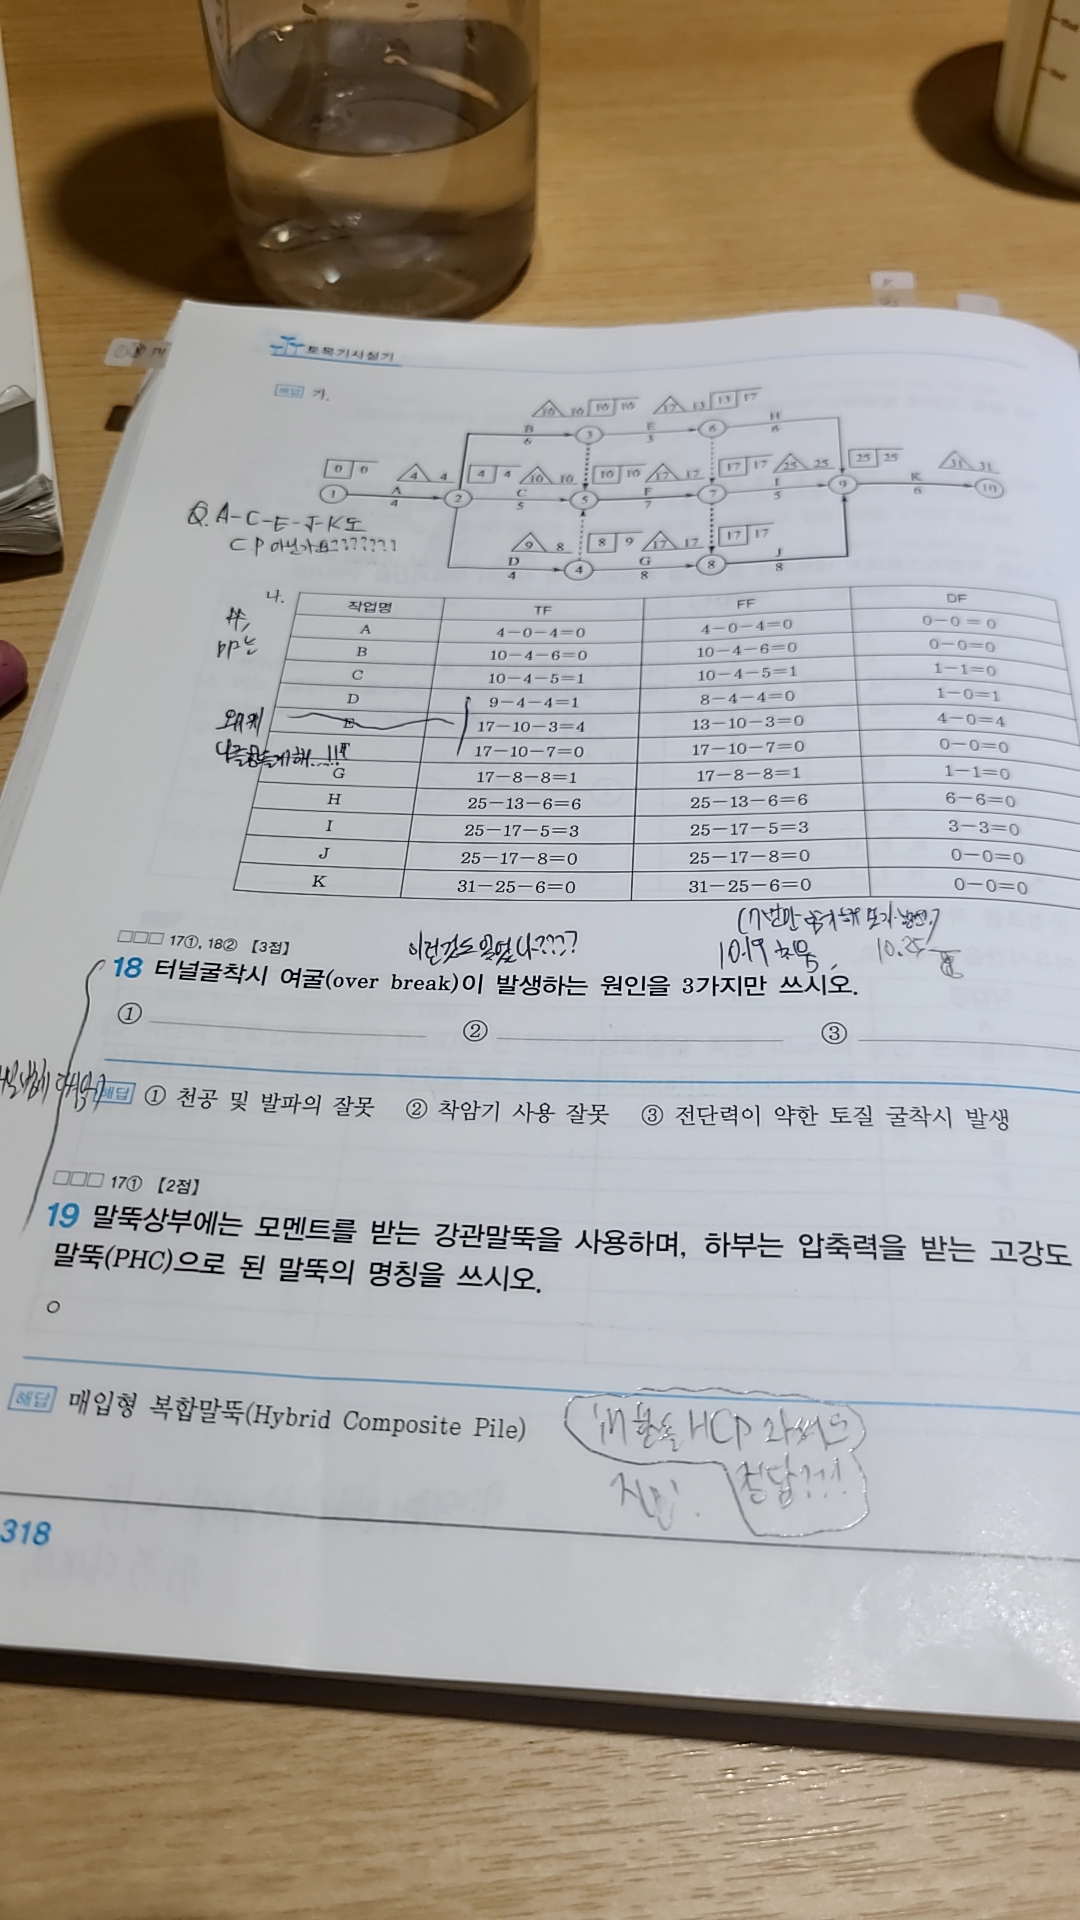 토목기사실기
해답 가.
10 10 10 10 17 13 13 17
B 6 3 E 3 6 H 6
0 0 4 4 4 4 10 10 10 10 17 17 17 17 25 25 25 25 31 31
1 A 4 2 C 5 5 F 7 7 I 5 9 K 6 10
Q. A-C-E-J-K도
CP 아닌가요???????
9 8 8 9 17 17 17 17
D 4 4 G 8 8 J 8
나.
작업명 TF FF DF
A 4-0-4=0 4-0-4=0 0-0=0
B 10-4-6=0 10-4-6=0 0-0=0
C 10-4-5=1 10-4-5=1 1-1=0
D 9-4-4=1 8-4-4=0 1-0=1
E 17-10-3=4 13-10-3=0 4-0=4
17-10-7=0 17-10-7=0 0-0=0
G 17-8-8=1 17-8-8=1 1-1=0
H 25-13-6=6 25-13-6=6 6-6=0
I 25-17-5=3 25-17-5=3 3-3=0
J 25-17-8=0 25-17-8=0 0-0=0
K 31-25-6=0 31-25-6=0 0-0=0
10.19 10.25
□□□ 17①, 18② 【3점】
18 터널굴착시 여굴(over break)이 발생하는 원인을 3가지만 쓰시오.
① ② ③
해답 ① 천공 및 발파의 잘못 ② 착암기 사용 잘못 ③ 전단력이 약한 토질 굴착시 발생
□□□ 17① 【2점】
19 말뚝상부에는 모멘트를 받는 강관말뚝을 사용하며, 하부는 압축력을 받는 고강도
말뚝(PHC)으로 된 말뚝의 명칭을 쓰시오.
○
해답 매입형 복합말뚝(Hybrid Composite Pile)
HCP
정답?!!
318